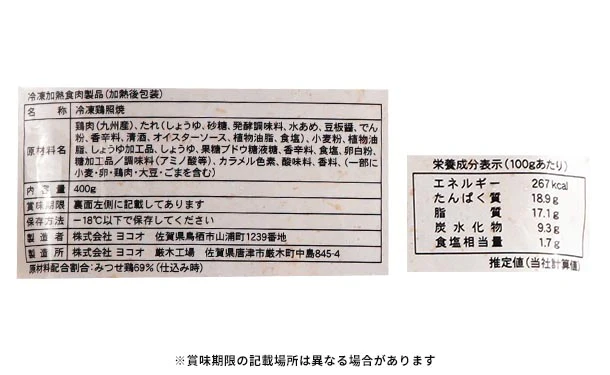 冷凍加熱食肉製品(加熱後包装)
名 称 冷凍鶏照焼
原材料名 鶏肉(九州産)、たれ(しょうゆ、砂糖、発酵調味料、水あめ、豆板醤、でん
粉、香辛料、清酒、オイスターソース、植物油脂、食塩)、小麦粉、植物油
脂、しょうゆ加工品、しょうゆ、果糖ブドウ糖液糖、香辛料、食塩、卵白粉、
糖加工品/調味料(アミノ酸等)、カラメル色素、酸味料、香料、(一部に
小麦・卵・鶏肉・大豆・ごまを含む)
内 容 量 400g
賞味期限 裏面左側に記載してあります
保存方法 −18℃以下で保存してください
製 造 者 株式会社 ヨコオ 佐賀県鳥栖市山浦町1239番地
製 造 所 株式会社 ヨコオ 厳木工場 佐賀県唐津市厳木町中島845-4
原材料配合割合:みつせ鶏69%(仕込み時)
栄養成分表示(100gあたり)
エネルギー 267kcal
たんぱく質 18.9g
脂質 17.1g
炭水化物 9.3g
食塩相当量 1.7g
推定値(当社計算値)
※賞味期限の記載場所は異なる場合があります